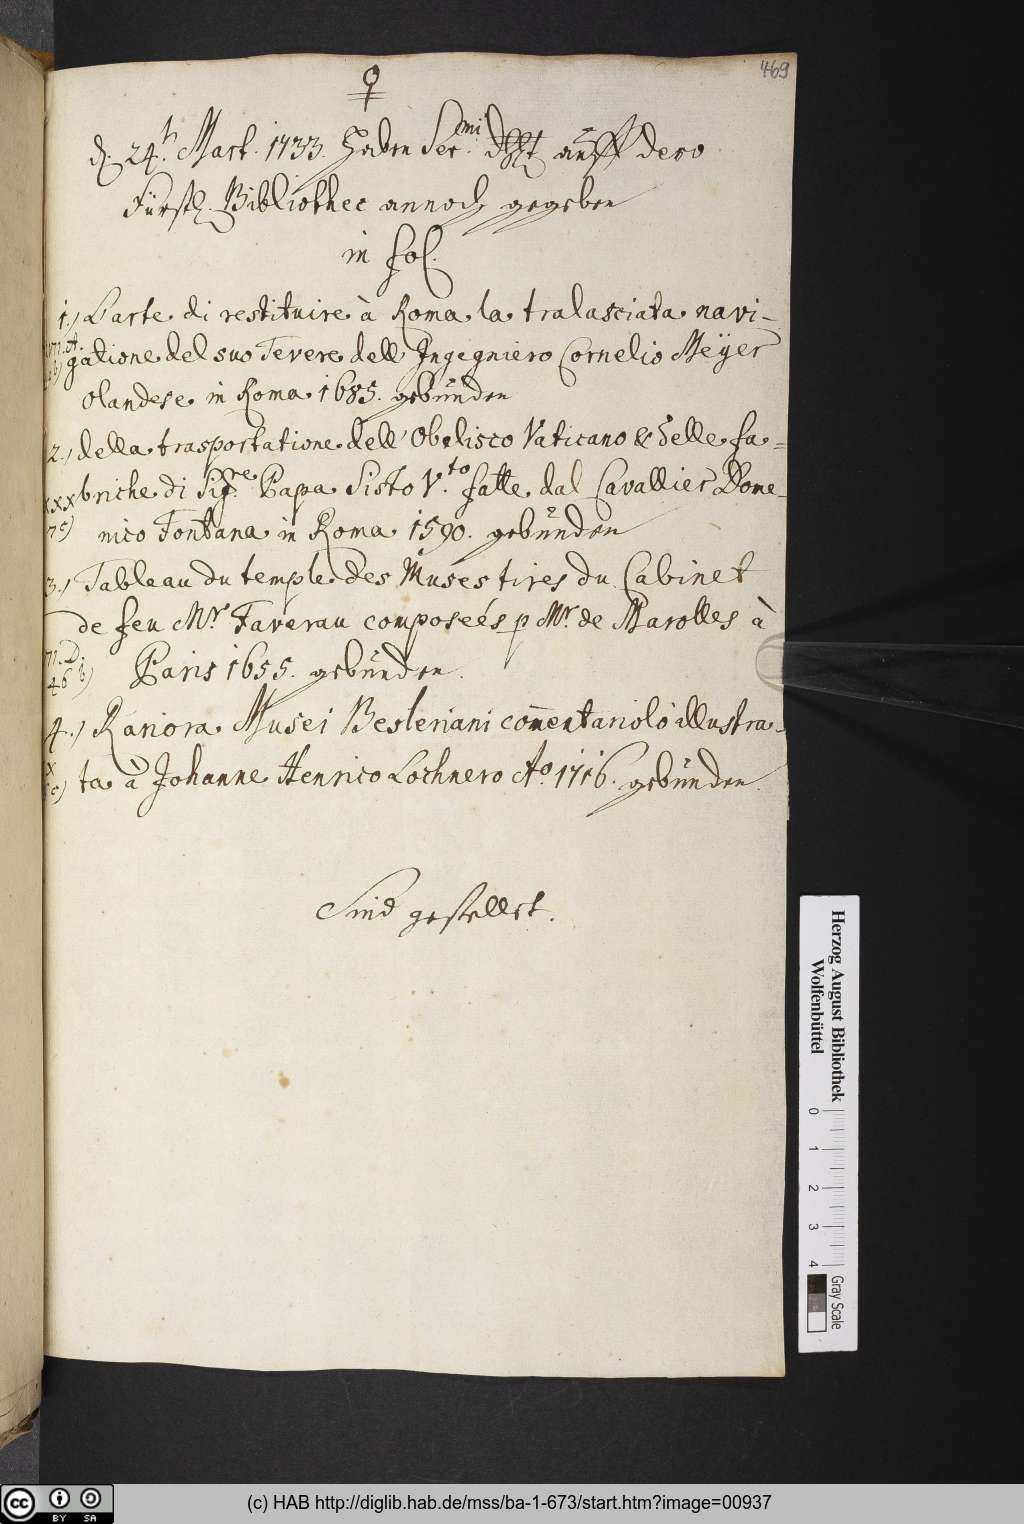 469
♀
d. 24.t Mart. 1733. Haben Ser.mi dhlt auff dero
Fürstl. Bibliothec annoch gegeben
in fol.
1.) L'arte di restituire à Roma la tralasciata navi-
gatione del suo Tevere dell Ingegniero Cornelio Meÿer
Olandese in Roma 1685. gebunden
2.) della trasportatione dell' Obelisco Vaticano & delle fa-
briche di Sig.re Papa Sisto V.to fatte dal Cavallier Dome-
nico Fontana in Roma 1590. gebunden
3.) Tableau du temple des Muses tires du Cabinet
de feu Mr. Faverau composeés p Mr. de Marolles à
Paris 1655. gebunden.
4.) Rariora Musei Besleriani com̄entariolo illustra-
ta à Johanne Henrico Lochnero Ao. 1716. gebunden.
Sind gestellet.
Herzog August Bibliothek
Wolfenbüttel
0 1 2 3 4
Gray Scale
cc BY SA
(c) HAB http://diglib.hab.de/mss/ba-1-673/start.htm?image=00937